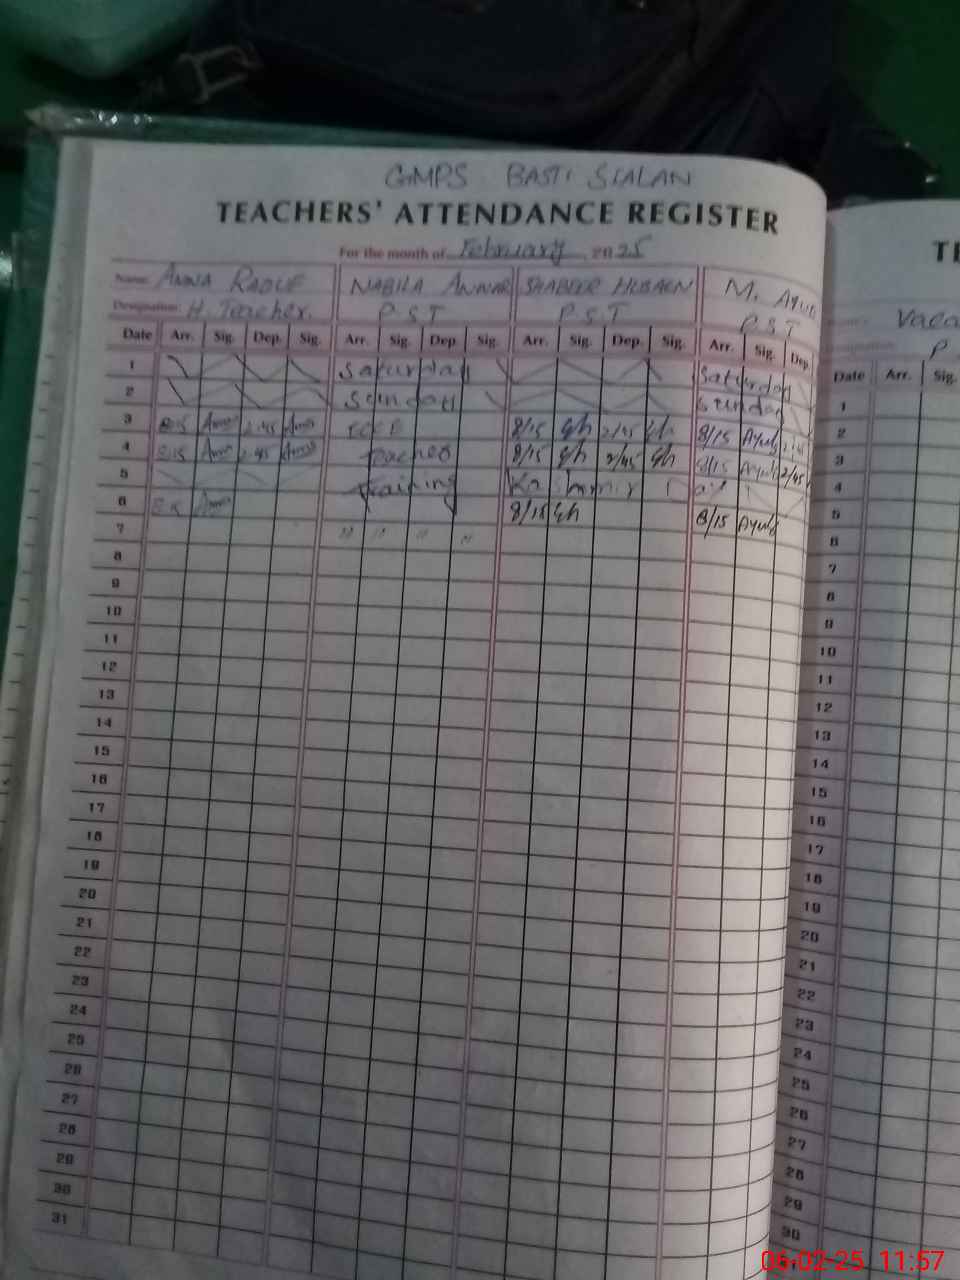 GMPS BASTI SIALAN
TEACHERS' ATTENDANCE REGISTER
For the month of February 2025
Name: AMNA RAOUF NABILA ANWAR SHABEER HUSAEN M. AYUB
Designation: H. Teacher. P.S.T P.S.T P.S.T
Date Arr. Sig. Dep. Sig. Arr. Sig. Dep. Sig. Arr. Sig. Dep. Sig. Arr. Sig. Dep.
1 Saturday Saturday
2 Sunday Sunday
3 8:15 2:45 ECCE 8/15 2/45 8/15 Ayub 2:45
4 8:15 2:45 teacher 8/15 2/45 8/15 Ayub 2/45
5 training Kashmir Day
6 8/15 8/15 Ayub
7 " " " "
8
9
10
11
12
13
14
15
16
17
18
19
20
21
22
23
24
25
26
27
28
29
30
31
TE
Vaca
P
Date Arr. Sig.
1
2
3
4
5
6
7
8
9
10
11
12
13
14
15
16
17
18
19
20
21
22
23
24
25
26
27
28
29
30
06-02-25 11:57